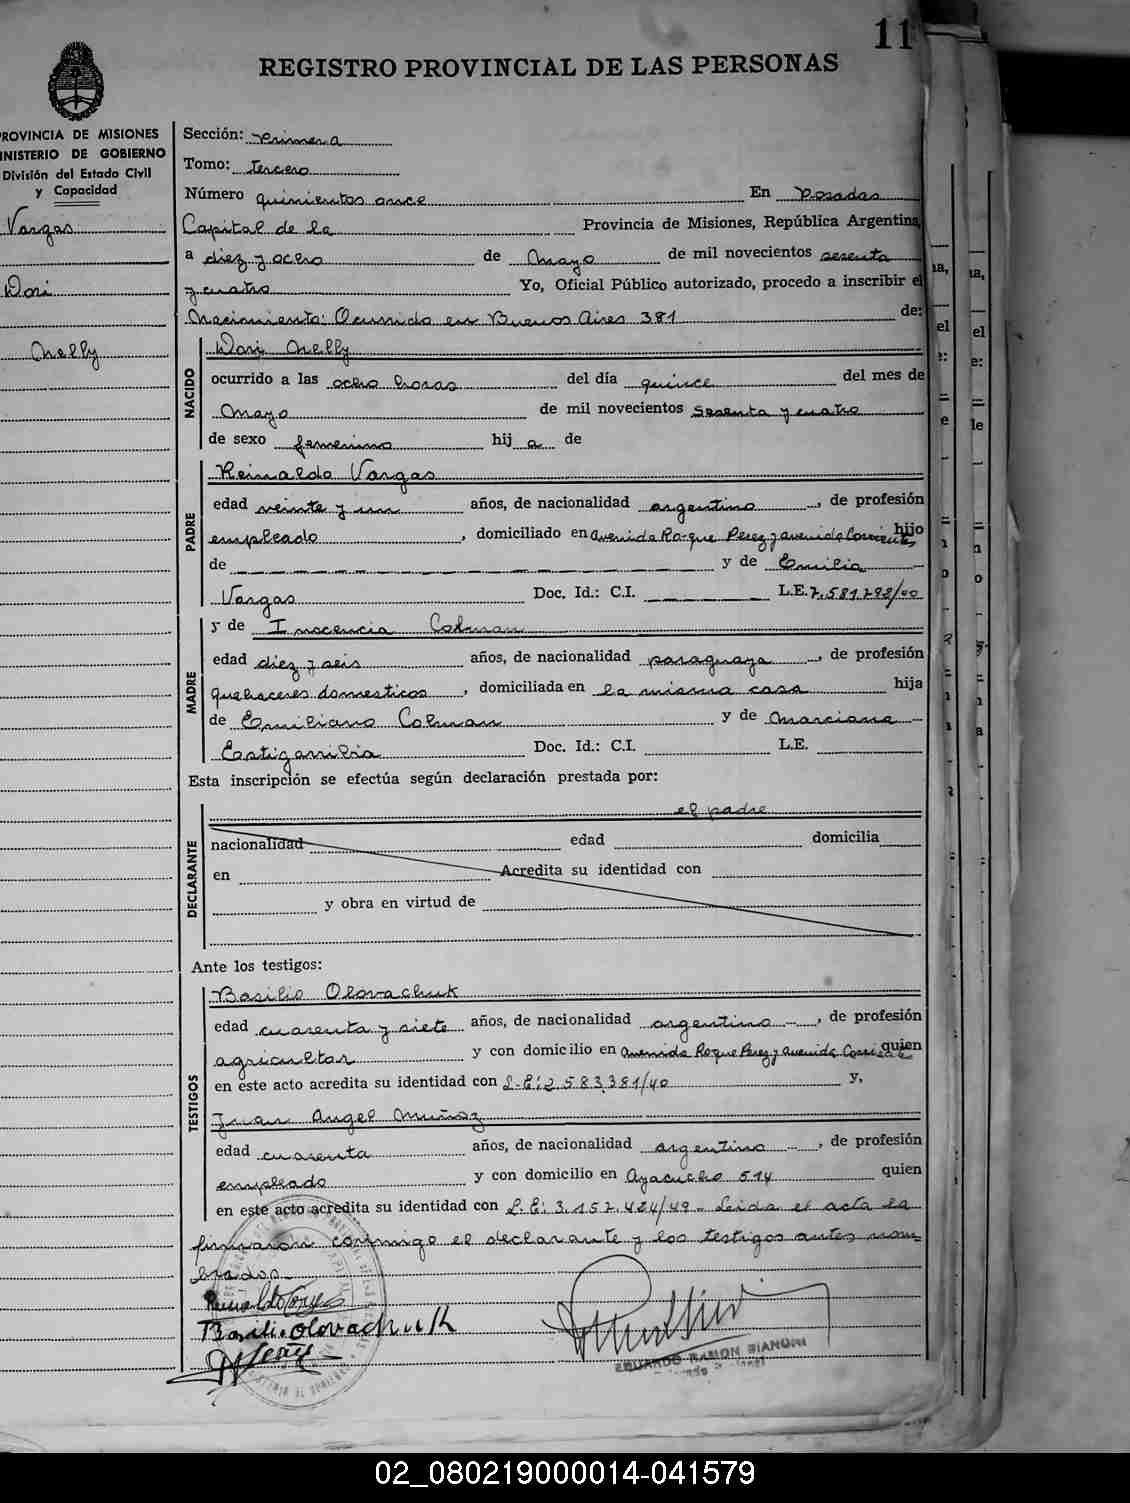 11
REGISTRO PROVINCIAL DE LAS PERSONAS
PROVINCIA DE MISIONES
MINISTERIO DE GOBIERNO
División del Estado Civil
y Capacidad
Vargas
Dori
Nelly
Sección: Primera
Tomo: tercero
Número quinientos once En Posadas
Capital de la Provincia de Misiones, República Argentina,
a diez y ocho de Mayo de mil novecientos sesenta
y cuatro Yo, Oficial Público autorizado, procedo a inscribir el
Nacimiento: Ocurrido en Buenos Aires 381 de:
NACIDO
Dori Nelly
ocurrido a las ocho horas del día quince del mes de
Mayo de mil novecientos sesenta y cuatro
de sexo femenino hij a de
PADRE
Reinaldo Vargas
edad veinte y un años, de nacionalidad argentino, de profesión
empleado, domiciliado en avenida Roque Perez y avenida Corrientes hijo
de y de Emilia
Vargas Doc. Id.: C.I. L.E. 7.581.798/00
MADRE
y de Inocencia Colman
edad diez y seis años, de nacionalidad paraguaya, de profesión
quehaceres domesticos, domiciliada en la misma casa hija
de Emiliano Colman y de Marciana
Estigarribia Doc. Id.: C.I. L.E.
Esta inscripción se efectúa según declaración prestada por:
DECLARANTE
el padre
nacionalidad edad domicilia
en Acredita su identidad con
y obra en virtud de
Ante los testigos:
TESTIGOS
Basilio Olovachuk
edad cuarenta y siete años, de nacionalidad argentino, de profesión
agricultor y con domicilio en avenida Roque Perez y avenida Corrientes quien
en este acto acredita su identidad con L.E: 2.583.381/40 y,
Juan Angel Muñoz
edad cuarenta años, de nacionalidad argentino, de profesión
empleado y con domicilio en Ayacucho 514 quien
en este acto acredita su identidad con L.E: 3.157.424/49 - Leida el acta la
firmaron conmigo el declarante y los testigos antes nom-
brados.
Basili.olovachuk
EDUARDO RAMON BIANCHI
02_080219000014-041579